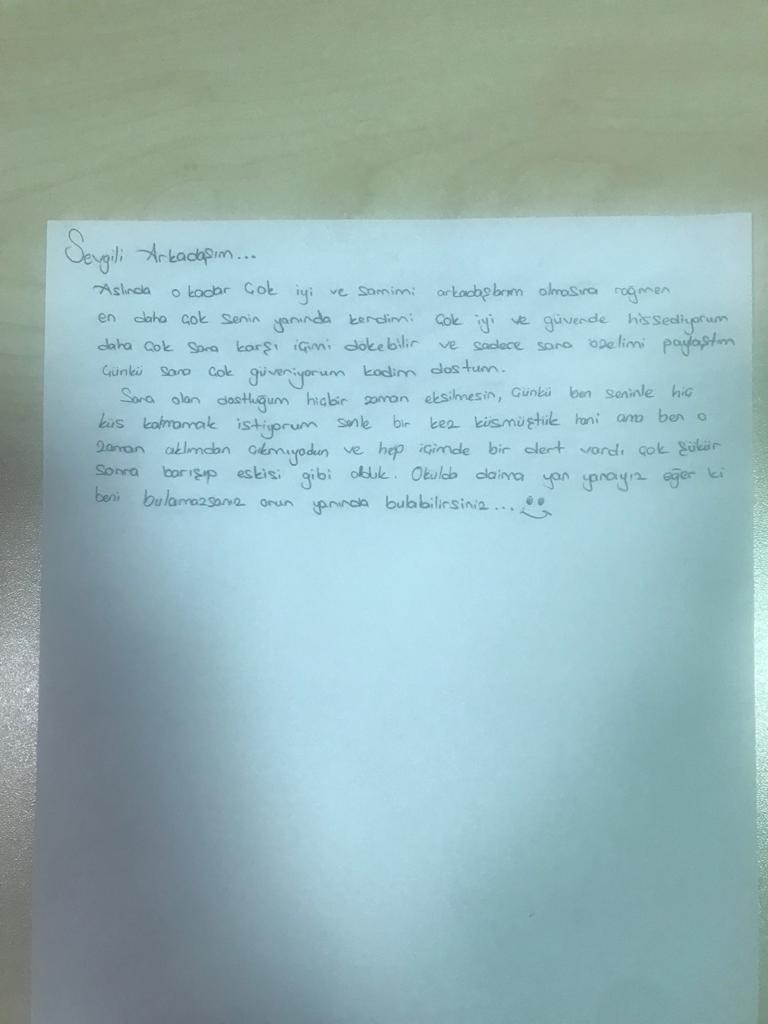 Sevgili Arkadaşım...
Aslında o kadar çok iyi ve samimi arkadaşlarım olmasına rağmen
en daha çok senin yanında kendimi çok iyi ve güvende hissediyorum
daha çok sana karşı içimi dökebilir ve sadece sana özelimi paylaştım
Çünkü sana çok güveniyorum kadim dostum.
Sana olan dostluğum hiçbir zaman eksilmesin, Çünkü ben seninle hiç
küs kalmamak istiyorum senle bir kez küsmüştük hani ama ben o
zaman aklımdan çıkmıyodun ve hep içimde bir dert vardı çok şükür
sonra barışıp eskisi gibi olduk. Okulda daima yan yanayız eğer ki
beni bulamazsanız onun yanında bulabilirsiniz...